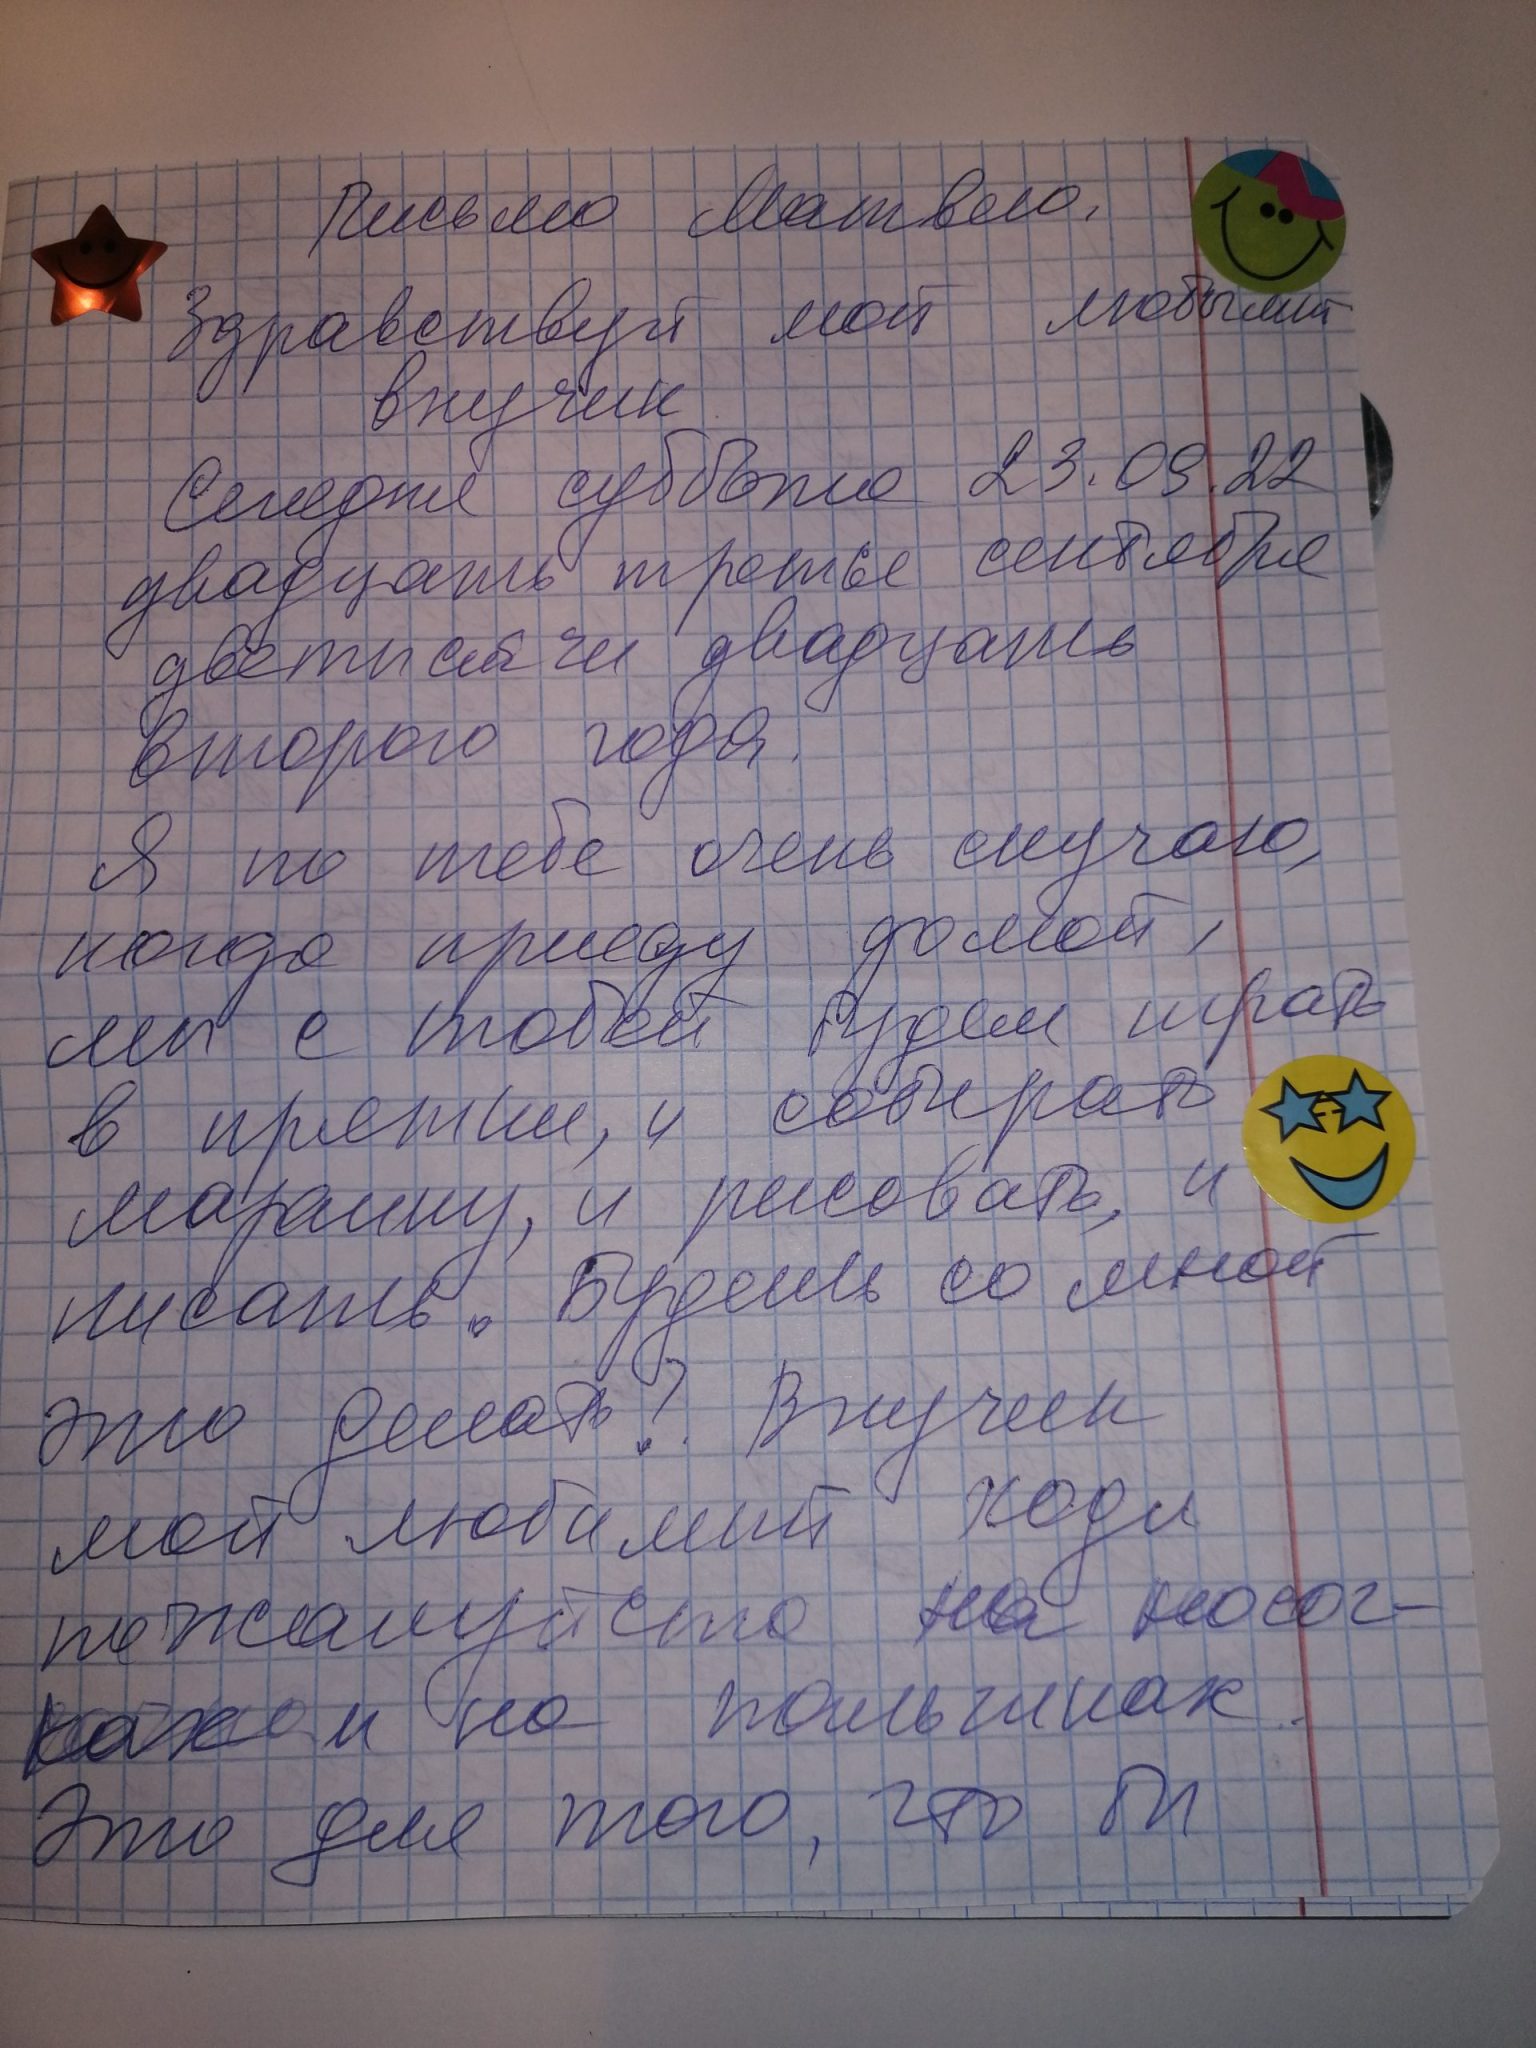 Письмо Матвею.
Здравствуй мой любымий
внучик
Сегодня суббота 23.09.22
двадцать третье сентября
дветысячи двадцать
второго года.
Я по тебе очень скучаю,
когда приеду домой,
мы с тобой будем играть
в прятки, и собирать
марашку, и рисовать, и
писать. Будешь со мной
это делать? Внучек
мой любимий ходи
пожалуйста на носоч-
ках и на пальчиках.
Это для того, что бы